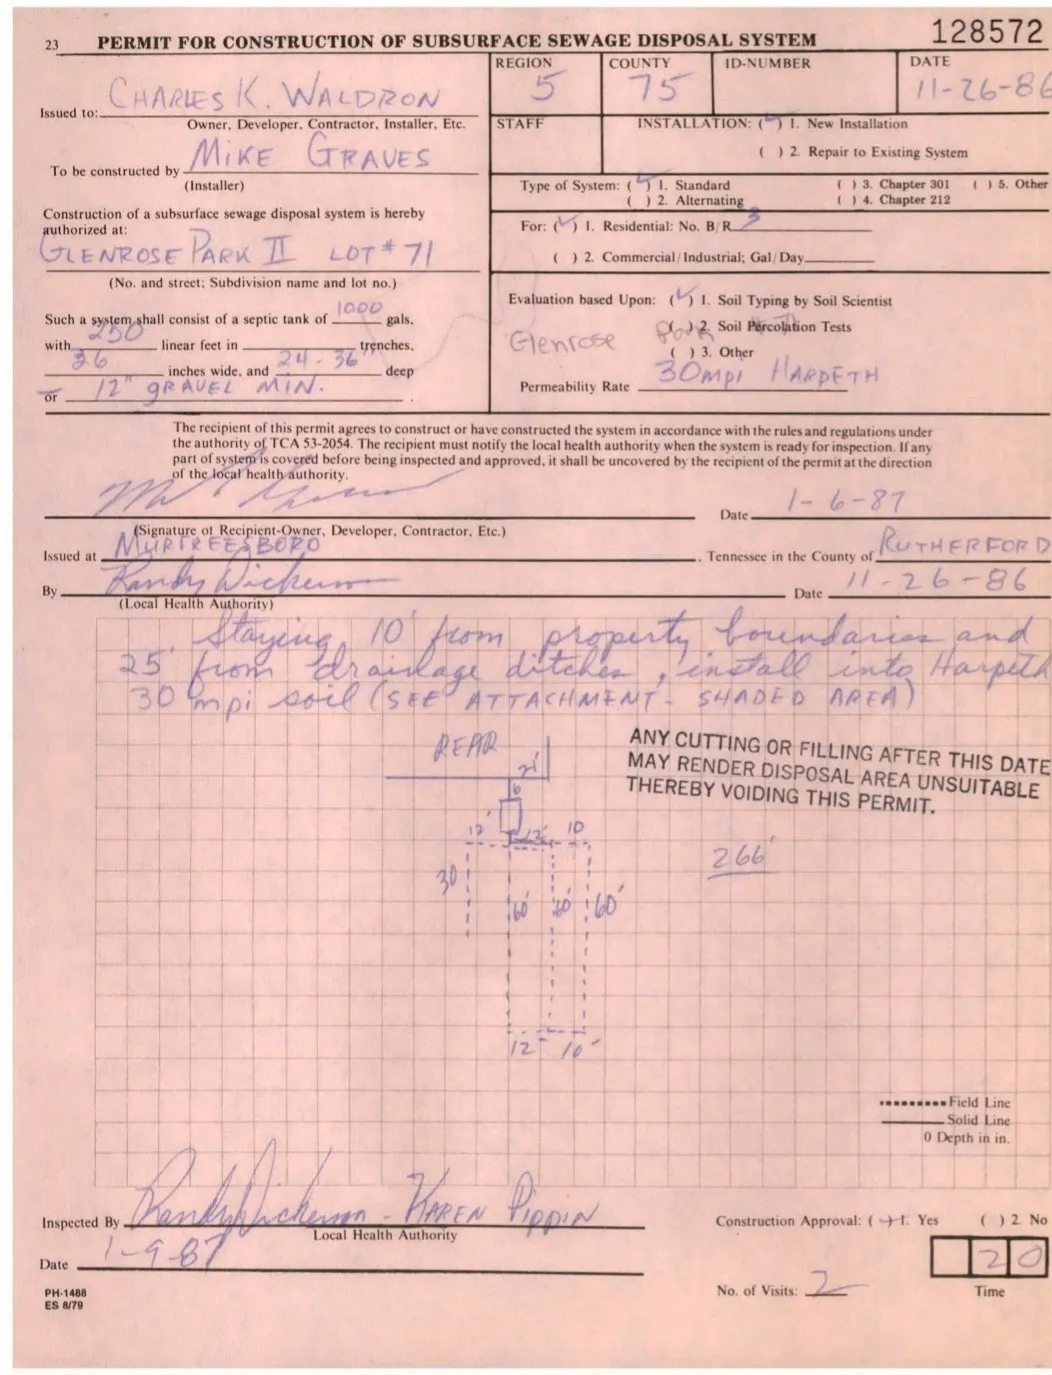 23 PERMIT FOR CONSTRUCTION OF SUBSURFACE SEWAGE DISPOSAL SYSTEM 128572
Issued to: CHARLES K. WALDRON
Owner, Developer, Contractor, Installer, Etc.
REGION 5
COUNTY 75
ID-NUMBER
DATE 11-26-86
To be constructed by MIKE GRAVES
(Installer)
STAFF
INSTALLATION: (✓) 1. New Installation
( ) 2. Repair to Existing System
Construction of a subsurface sewage disposal system is hereby
authorized at:
GLENROSE PARK II LOT # 71
(No. and street; Subdivision name and lot no.)
Type of System: (✓) 1. Standard ( ) 3. Chapter 301 ( ) 5. Other
( ) 2. Alternating ( ) 4. Chapter 212
For: (✓) 1. Residential: No. B/R 3
( ) 2. Commercial/Industrial; Gal/Day
Such a system shall consist of a septic tank of 1000 gals,
with 250 linear feet in trenches,
36 inches wide, and 24-36" deep
or 12" GRAVEL MIN.
Evaluation based Upon: (✓) 1. Soil Typing by Soil Scientist
( ) 2. Soil Percolation Tests
Glenrose Park
( ) 3. Other
Permeability Rate 30mpi HARPETH
The recipient of this permit agrees to construct or have constructed the system in accordance with the rules and regulations under
the authority of TCA 53-2054. The recipient must notify the local health authority when the system is ready for inspection. If any
part of system is covered before being inspected and approved, it shall be uncovered by the recipient of the permit at the direction
of the local health authority.
Date 1-6-87
(Signature of Recipient-Owner, Developer, Contractor, Etc.)
Issued at MURFREESBORO, Tennessee in the County of RUTHERFORD
By Randy Dickerson Date 11-26-86
(Local Health Authority)
Staying 10' from property boundaries and
25' from drainage ditches, install into Harpeth
30 mpi soil (SEE ATTACHMENT - SHADED AREA)
REAR
ANY CUTTING OR FILLING AFTER THIS DATE
MAY RENDER DISPOSAL AREA UNSUITABLE
THEREBY VOIDING THIS PERMIT.
21'
6
12' 12' 10
266'
30
60' 60' 60'
12' 10'
Field Line
Solid Line
0 Depth in in.
Inspected By Randy Dickerson - KAREN PIPPIN
Local Health Authority
Construction Approval: (+) 1. Yes ( ) 2. No
Date 1-9-87
20
No. of Visits: 2
Time
PH-1488
ES 8/79